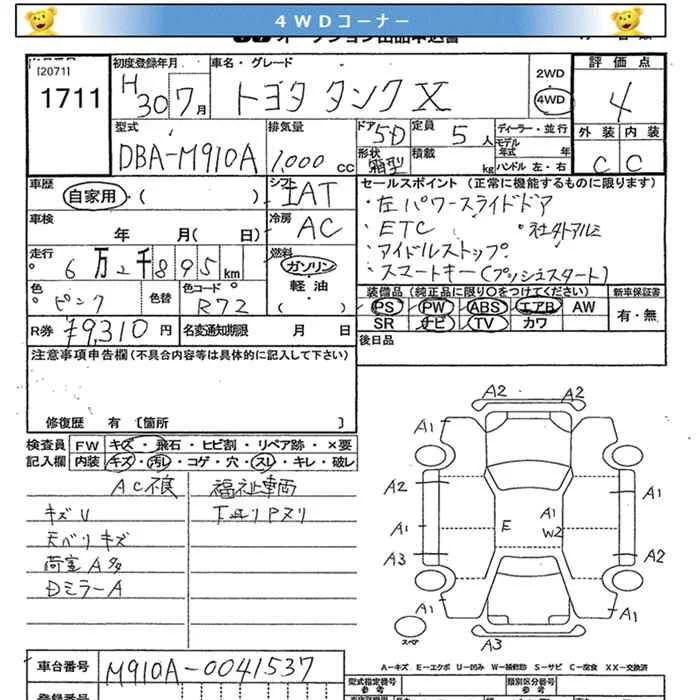 4WDコーナー
[2071]
1711
初度登録年月
H30 7月
車名・グレード
トヨタ タンク X
2WD
4WD
評価点
4
外装 内装
C C
型式
DBA-M910A
排気量
1,000 CC
ドア 5D
形状 箱型
定員 5人
積載 kg
ディーラー・並行
モデル年式 年
ハンドル 左・右
車歴
自家用・( )
シフト
IAT
セールスポイント (正常に機能するものに限ります)
・左パワースライドドア
・ETC ・社外アルミ
・アイドルストップ
・スマートキー(プッシュスタート)
車検
年 月( 日)
冷房
AC
走行
6万2千895km
燃料
ガソリン・
軽油・
( )
色
ピンク
色替
色コード
R72
装備品 (純正品に限り○をつけてください)
PS PW ABS エアB AW
SR ナビ TV カワ
新車保証書
有・無
R券 ¥9,310円
名変通知期限 月 日
後日品
注意事項申告欄(不具合内容等は具体的に記入して下さい)
修復歴 有 〔箇所 〕
検査員記入欄
FW キズ・飛石・ヒビ割・リペア跡・×要
内装 キズ・汚レ・コゲ・穴・スレ・キレ・破レ
AC不良 福祉車両
キズU 下廻りPヌリ
天ベリキズ
荷室A多
DミラーA
A2 A2
A1 A1
A2 A1
A1 E A1 W2
A3 A2
A1 A1
スペア A3
A-キズ E-エクボ U-凹み W-補修跡 S-サビ C-腐食 XX-交換済
車台番号
M910A-0041537
型式指定番号
参考
類別区分番号
参考
登録番号